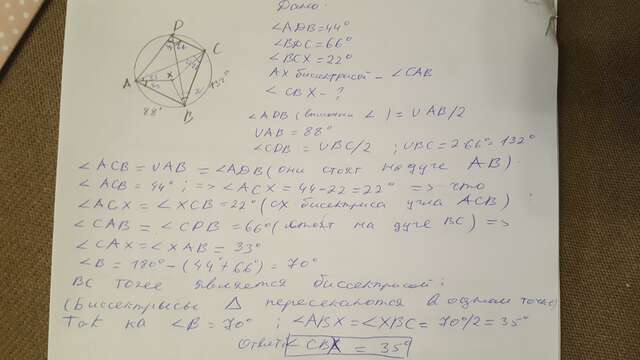 Дано:
∠ADB=44°
∠BDC=66°
∠BCX=22°
AX биссектрисой - ∠CAB
∠CBX - ?
∠ADB ( ∠ ) = ∪AB/2
∪AB = 88°
∠CDB = ∪BC/2 ; ∪BC=2·66°=132°
D
C
A
X
B
88°
132°
∠ACB = ∪AB = ∠ADB (они стоят на дуге AB).
∠ACB = 44° ; => ∠ACX = 44-22=22° => что
∠ACX = ∠XCB=22° (CX биссектриса угла ACB)
∠CAB = ∠CDB = 66° ( на дуге BC) =>
∠CAX=∠XAB = 33°
∠B = 180° - (44°+66°) = 70°
BC тоже является биссектрисой:
(Биссектрисы △ пересекаются в одной точке)
Так ка ∠B = 70° ; ∠ABX=∠XBC= 70°/2 = 35°
Ответ: ∠CBX = 35°